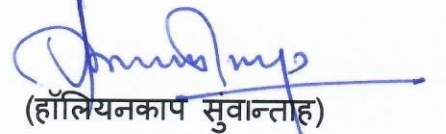 (हॉलियनकाप सुवान्ताह)